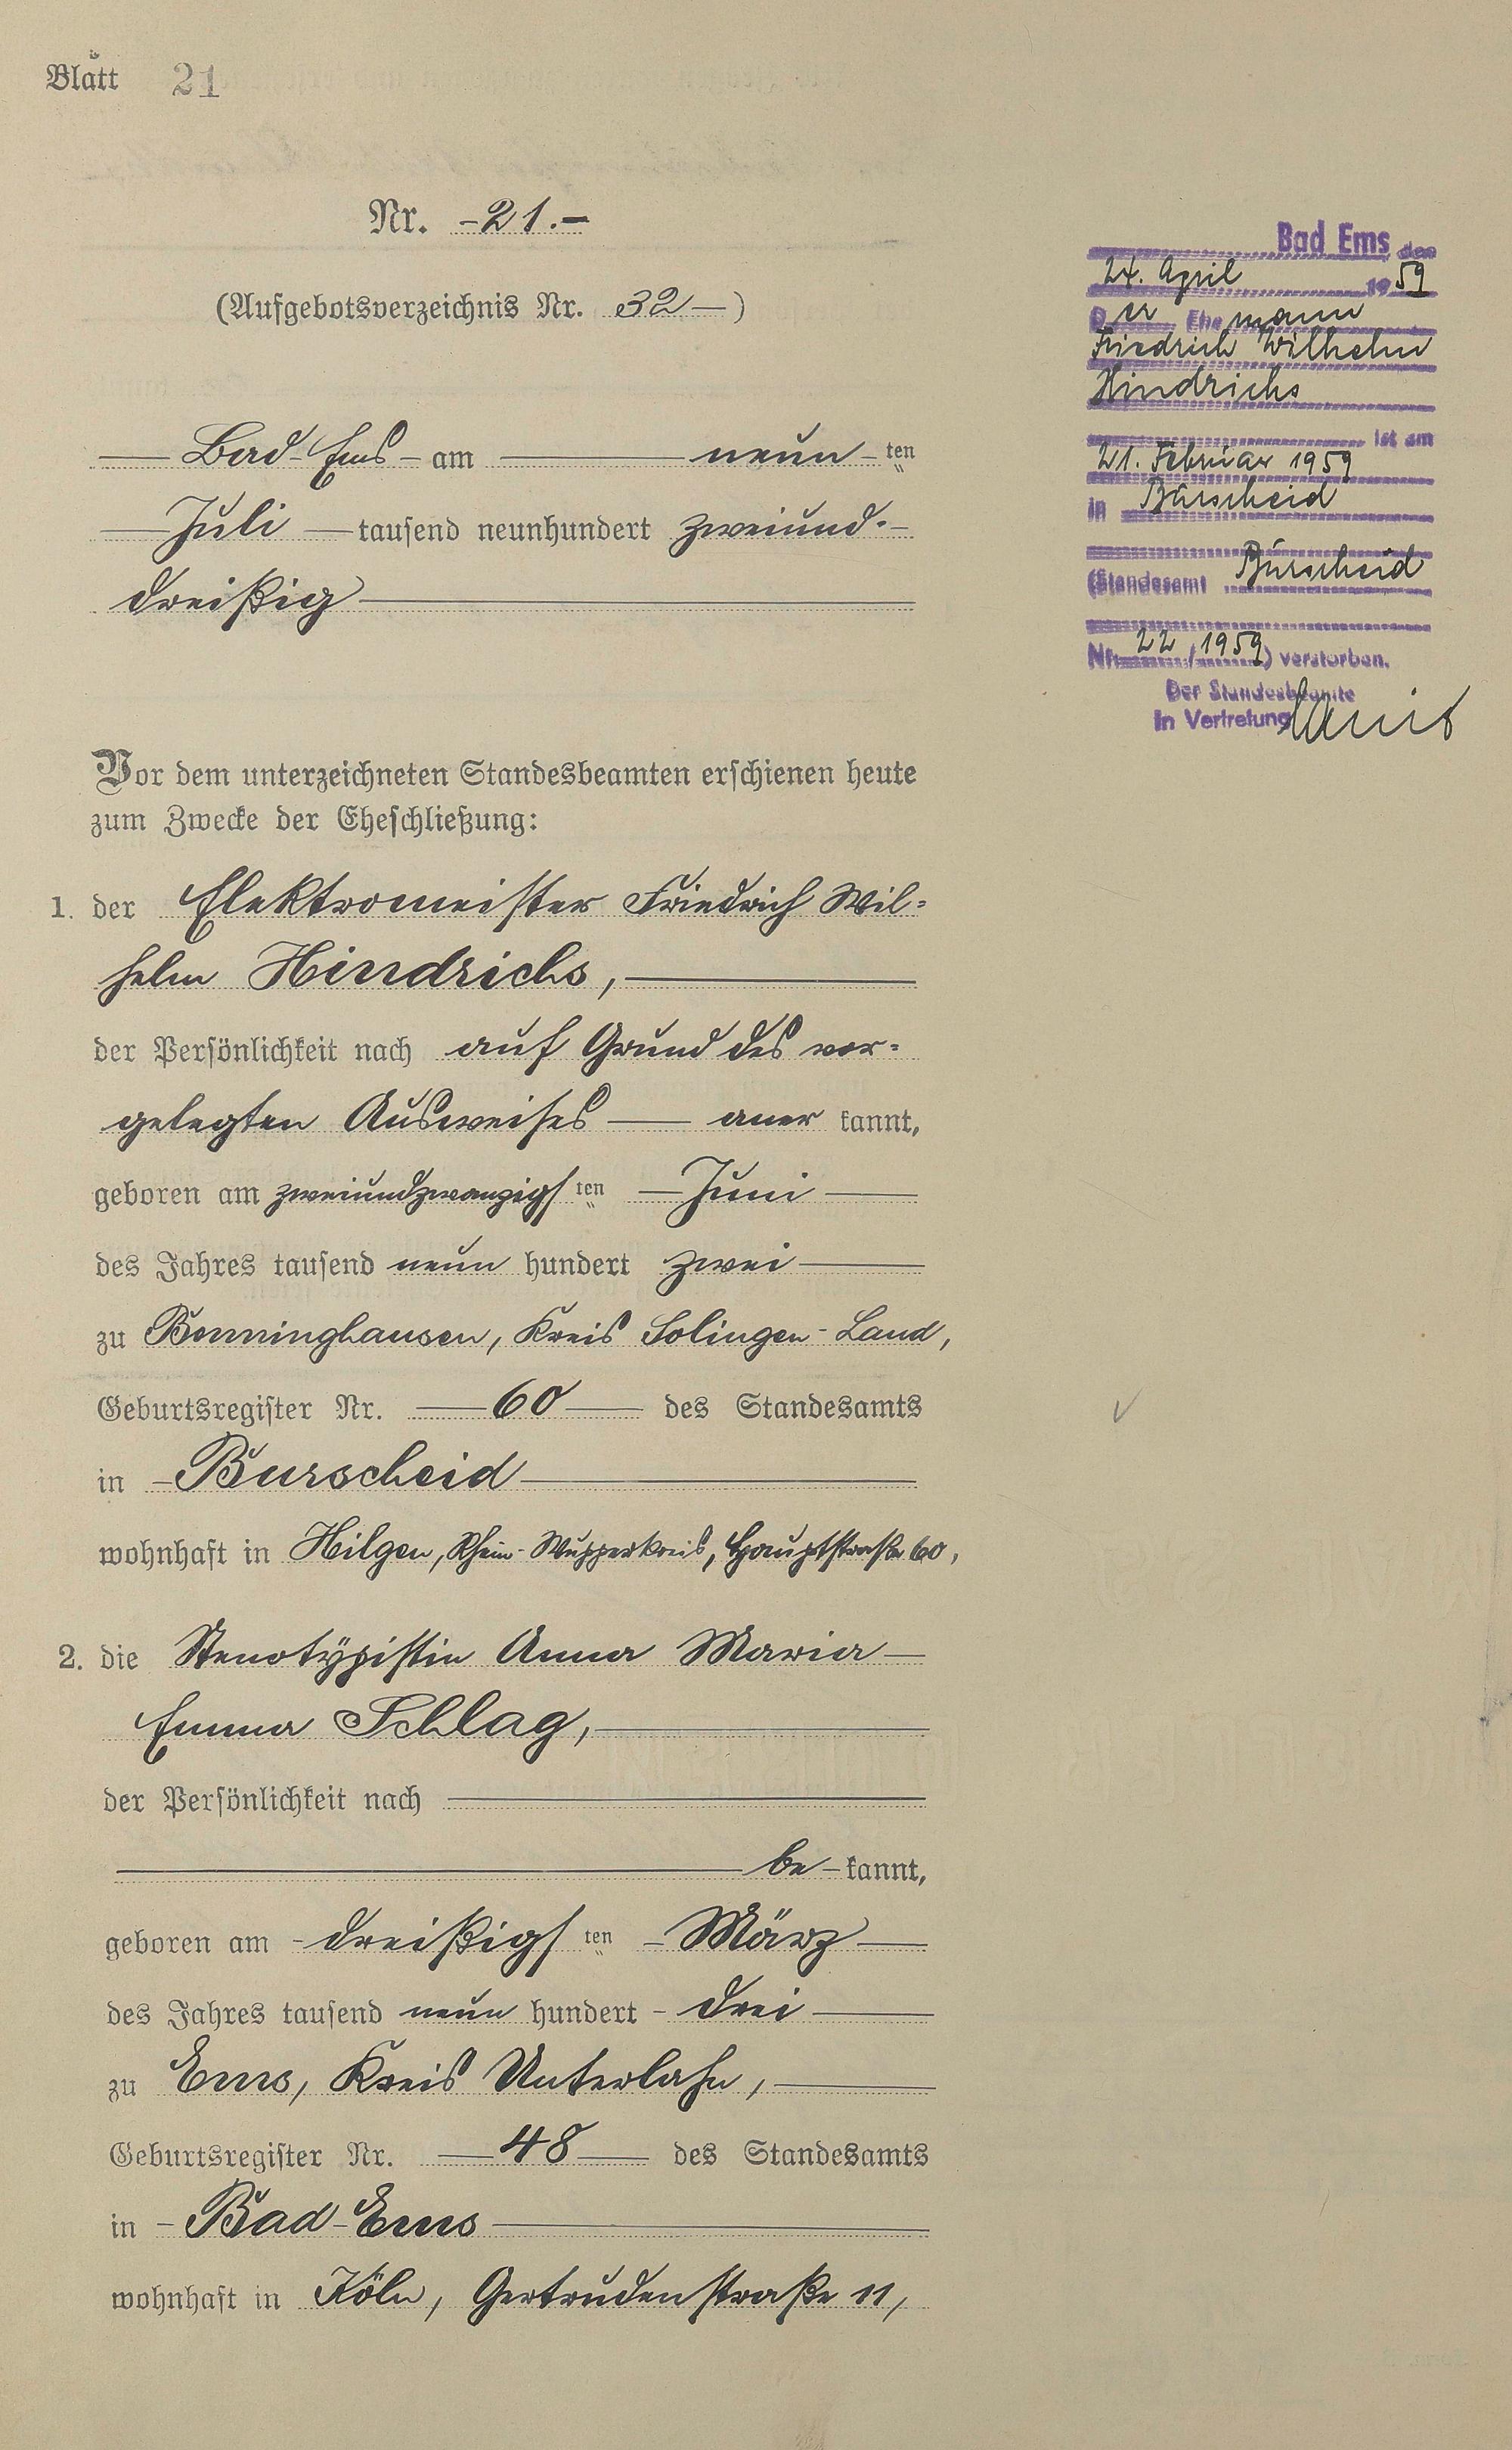 Blatt 21
Nr. -21.-
(Aufgebotsverzeichnis Nr. 32 —)
— Bad Ems — am — neun — ten
— Juli — tausend neunhundert zweiund-
dreißig —
Vor dem unterzeichneten Standesbeamten erschienen heute
zum Zwecke der Eheschließung:
1. der Elektromeister Friedrich Wil=
helm Hindrichs, —
der Persönlichkeit nach auf Grund des vor=
gelegten Ausweises — aner kannt,
geboren am zweiundzwanzigs ten — Juni —
des Jahres tausend neun hundert zwei —
zu Benninghausen, Kreis Solingen-Land,
Geburtsregister Nr. — 60 — des Standesamts
in — Burscheid —
wohnhaft in Hilgen, Rhein-Wupperkreis, Hauptstraße 60,
2. die Stenotypistin Anna Maria —
Emma Schlag, —
der Persönlichkeit nach —
— be — kannt,
geboren am - dreißigs ten - März —
des Jahres tausend neun hundert - drei —
zu Ems, Kreis Unterlahn, —
Geburtsregister Nr. — 48 — des Standesamts
in - Bad-Ems —
wohnhaft in Köln, Gertrudenstraße 11,
Bad Ems den
24. April 1959
Der Ehemann
Friedrich Wilhelm
Hindrichs
ist am
21. Februar 1959
in Burscheid
(Standesamt Burscheid
Nr. 22/1959) verstorben.
Der Standesbeamte
In Vertretung